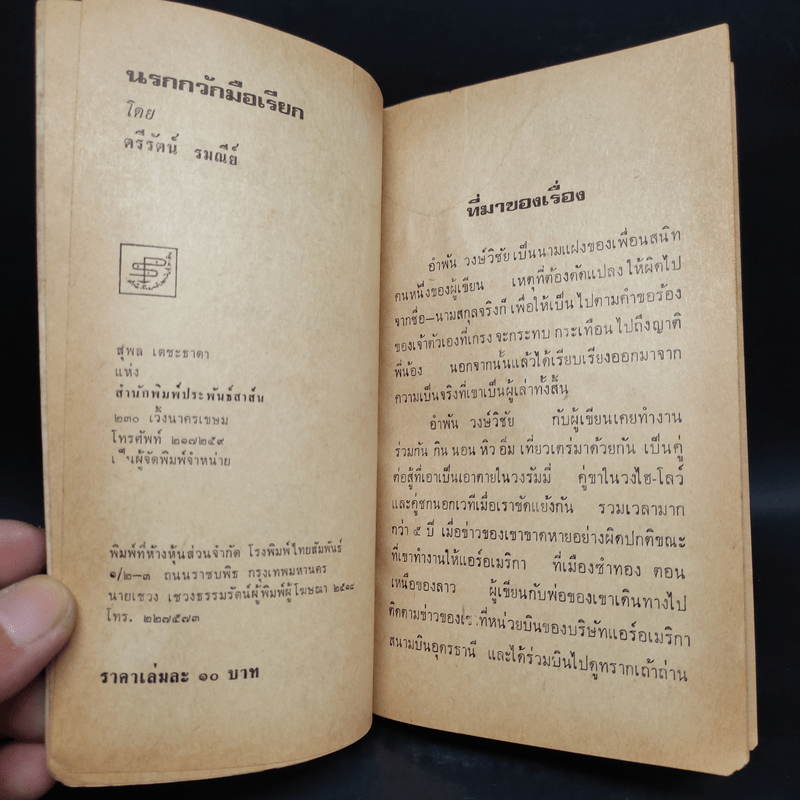 นรกกวักมือเรียก
โดย
ตรีรัตน์ รมณีย์
สุพล เตชะธาดา
แห่ง
สำนักพิมพ์ประพันธ์สาส์น
๒๓๐ เวิ้งนาครเขษม
โทรศัพท์ ๒๑๗๒๕๙
เป็นผู้จัดพิมพ์จำหน่าย
พิมพ์ที่ห้างหุ้นส่วนจำกัด โรงพิมพ์ไทยสัมพันธ์
๑/๒–๓ ถนนราชบพิธ กรุงเทพมหานคร
นายเชวง เชวงธรรมรัตน์ผู้พิมพ์ผู้โฆษณา ๒๕๑๘
โทร. ๒๒๗๕๗๓
ราคาเล่มละ ๑๐ บาท
ที่มาของเรื่อง
อำพัน วงษ์วิชัย เป็นนามแฝงของเพื่อนสนิท
คนหนึ่งของผู้เขียน เหตุที่ต้องดัดแปลง ให้ผิดไป
จากชื่อ–นามสกุลจริงก็ เพื่อให้เป็น ไปตามคำขอร้อง
ของเจ้าตัวเองที่เกรง จะกระทบ กระเทือน ไปถึงญาติ
พี่น้อง นอกจากนั้นแล้วได้เรียบเรียงออกมาจาก
ความเป็นจริงที่เขาเป็นผู้เล่าทั้งสิ้น
อำพัน วงษ์วิชัย กับผู้เขียนเคยทำงาน
ร่วมกัน กิน นอน หิว อิ่ม เที่ยวเตร่มาด้วยกัน เป็นคู่
ต่อสู้ที่เอาเป็นเอาตายในวงรัมมี่ คู่ขาในวงไฮ-โลว์
และคู่ชกนอกเวทีเมื่อเราขัดแย้งกัน รวมเวลามาก
กว่า ๕ ปี เมื่อข่าวของเขาขาดหายอย่างผิดปกติขณะ
ที่เขาทำงานให้แอร์อเมริกา ที่เมืองซำทอง ตอน
เหนือของลาว ผู้เขียนกับพ่อของเขาเดินทางไป
ติดตามข่าวของเขาที่หน่วยบินของบริษัทแอร์อเมริกา
สนามบินอุดรธานี และได้ร่วมบินไปดูทรากเถ้าถ่าน